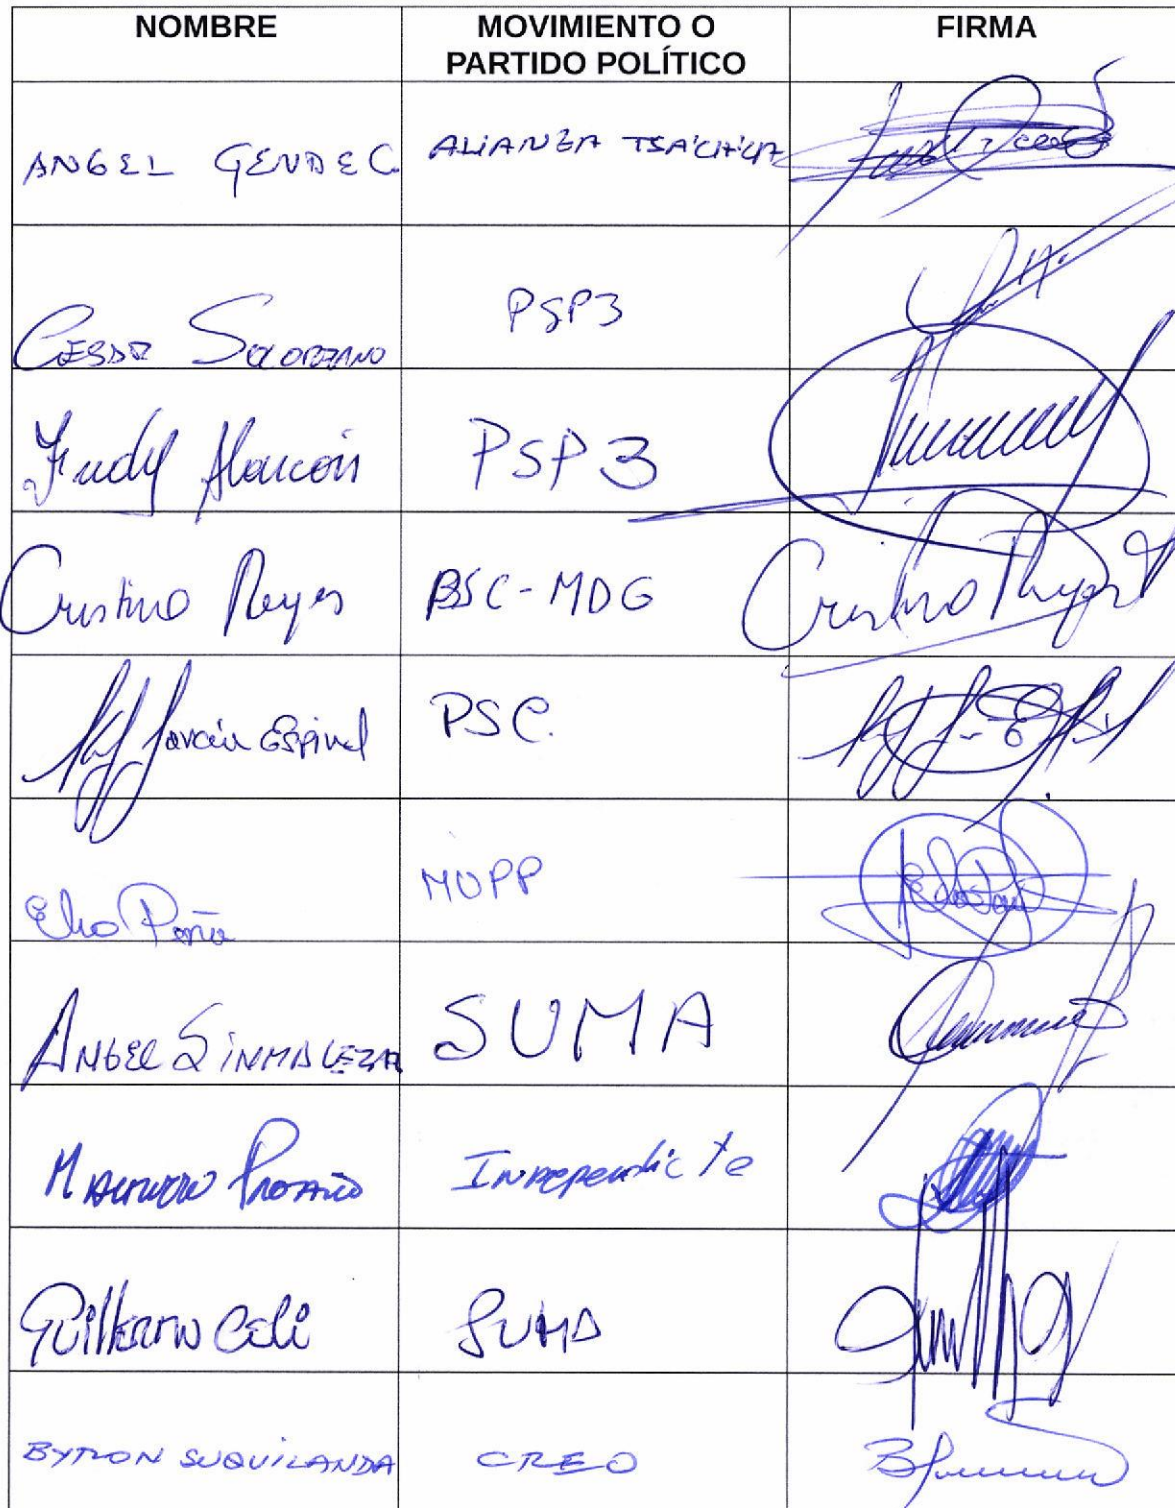 NOMBRE MOVIMIENTO O PARTIDO POLÍTICO FIRMA
ANGEL GENDE C. ALIANZA TSA'CHILA
CESAR SOLORZANO PSP3
Fredy Alarcón PSP3
Cristina Reyes BSC-MDG Cristina Reyes
García Espinel PSC.
Elio Peña MUPP Elio Peña
ANGEL SINMALEZA SUMA
MAURICIO PROAÑO INDEPENDIENTE
Guillermo Celi SUMA
BYRON SUQUILANDA CREO